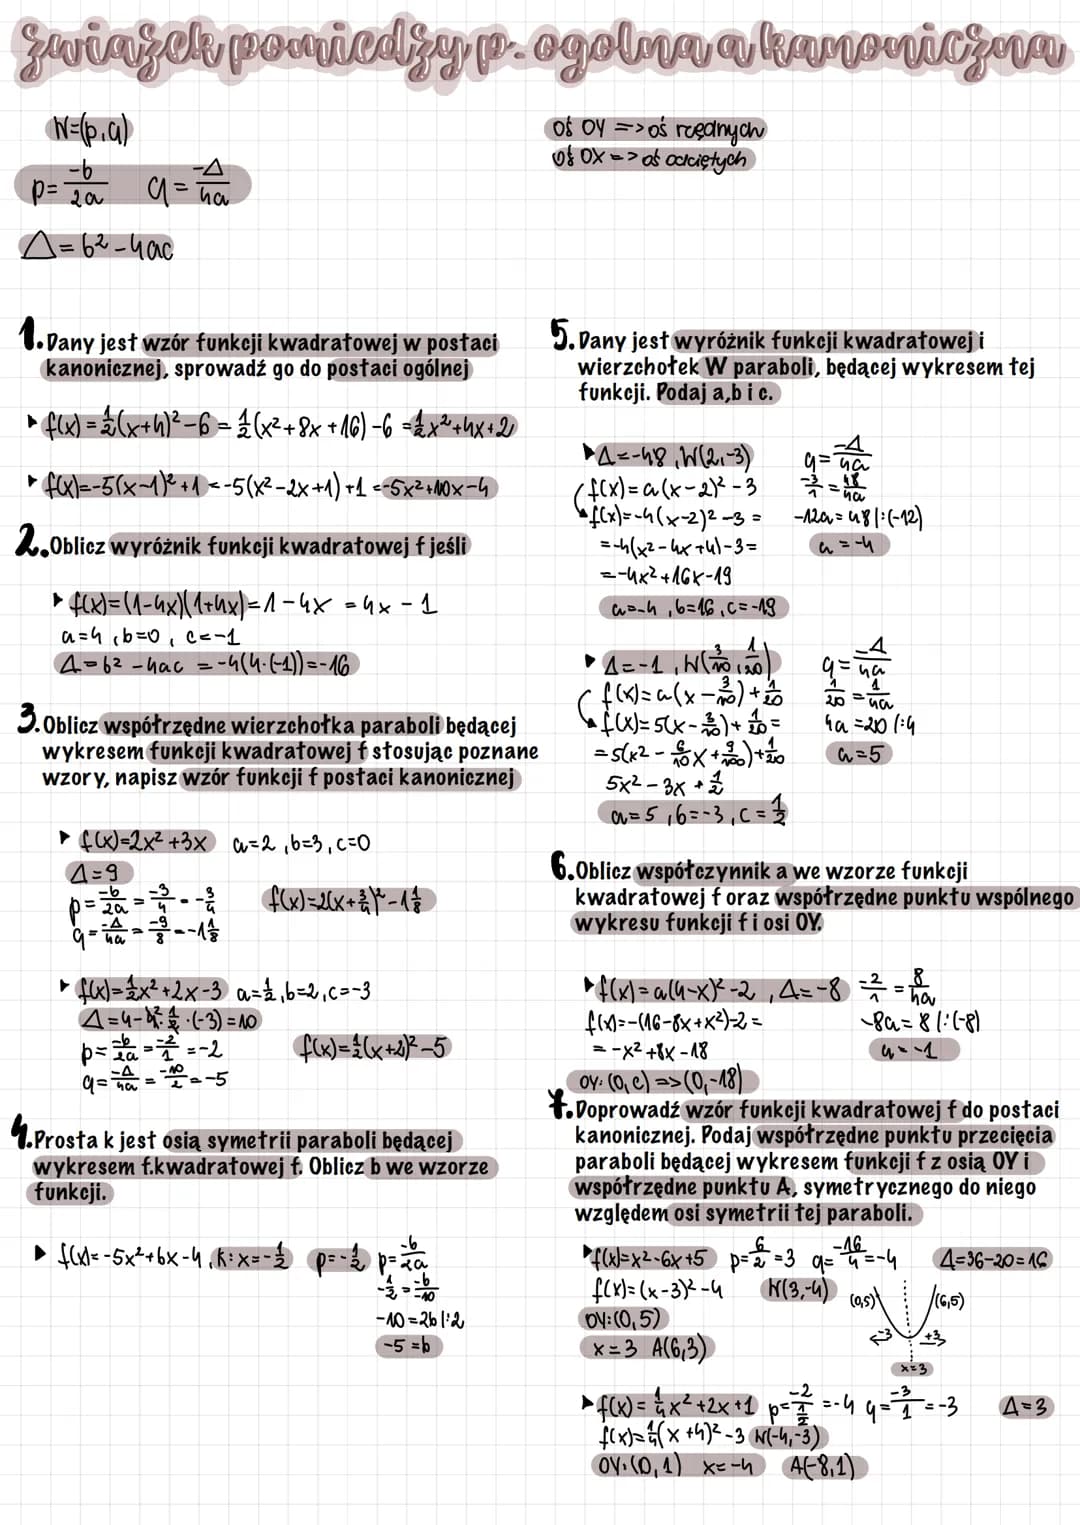 związek pomiedzy p. ogolna a kanoniczna
W=(p,q)
p=-b/2a q=-Δ/4a
Δ=b²-4ac
oś OY => oś rzędnych
oś OX => oś odciętych
1. Dany jest wzór funkcji kwadratowej w postaci
kanonicznej, sprowadź go do postaci ogólnej
▸ f(x)=1/2(x+4)²-6=1/2(x²+8x+16)-6=1/2x²+4x+2
▸ f(x)=-5(x-1)²+1=-5(x²-2x+1)+1=-5x²+10x-4
2. Oblicz wyróżnik funkcji kwadratowej f jeśli
▸ f(x)=(1-4x)(1+4x)=1-4x=4x-1
a=4, b=0, c=-1
Δ=b²-4ac=-4(4·(-1))=-16
3. Oblicz współrzędne wierzchołka paraboli będącej
wykresem funkcji kwadratowej f stosując poznane
wzory, napisz wzór funkcji f postaci kanonicznej
▸ f(x)=2x²+3x a=2, b=3, c=0
Δ=9
p=-b/2a=-3/4=-3/4 f(x)=2(x+3/4)²-1 1/8
q=-Δ/4a=-9/8=-1 1/8
▸ f(x)=1/2x²+2x-3 a=1/2, b=2, c=-3
Δ=4-4²·1/2·(-3)=10
p=-b/2a=-2/1=-2 f(x)=1/2(x+2)²-5
q=-Δ/4a=-10/2=-5
4. Prosta k jest osią symetrii paraboli będącej
wykresem f.kwadratowej f. Oblicz b we wzorze
funkcji.
▸ f(x)=-5x²+bx-4, k: x=-1/2 p=-1/2 p=-b/2a
-1/2=-b/-10
-10=2b |:2
-5=b
5. Dany jest wyróżnik funkcji kwadratowej i
wierzchołek W paraboli, będącej wykresem tej
funkcji. Podaj a,b i c.
▸ Δ=-48, W(2,-3) q=-Δ/4a
f(x)=a(x-2)²-3 -3/1=48/4a
f(x)=-4(x-2)²-3= -12a=48 |:(-12)
=-4(x²-4x+4)-3= a=-4
=-4x²+16x-19
a=-4, b=16, c=-19
▸ Δ=-1, W(3/10, 1/20) q=-Δ/4a
f(x)=a(x-3/10)+1/20 1/20=1/4a
f(x)=5(x-3/10)+1/20= 4a=20 /:4
=5(x²-6/10x+9/100)+1/20 a=5
5x²-3x+1/2
a=5, b=-3, c=1/2
6. Oblicz współczynnik a we wzorze funkcji
kwadratowej f oraz współrzędne punktu wspólnego
wykresu funkcji f i osi OY.
▸ f(x)=a(4-x)²-2, Δ=-8 -2/1=8/4a
f(x)=-(16-8x+x²)-2= -8a=8 |:(-8)
=-x²+8x-18 a=-1
OY: (0,c) => (0,-18)
7. Doprowadź wzór funkcji kwadratowej f do postaci
kanonicznej. Podaj współrzędne punktu przecięcia
paraboli będącej wykresem funkcji f z osią OY i
współrzędne punktu A, symetrycznego do niego
względem osi symetrii tej paraboli.
▸ f(x)=x²-6x+5 p=6/2=3 q=-16/4=-4 Δ=36-20=16
f(x)=(x-3)²-4 W(3,-4) (0,5) (6,5)
OY:(0,5) -3 +3
x=3 A(6,3)
x=3
▸ f(x)=1/4x²+2x+1 p=-2/(1/2)=-4 q=-3/1=-3 Δ=3
f(x)=1/4(x+4)²-3 W(-4,-3)
OY:(0,1) x=-4 A(-8,1)